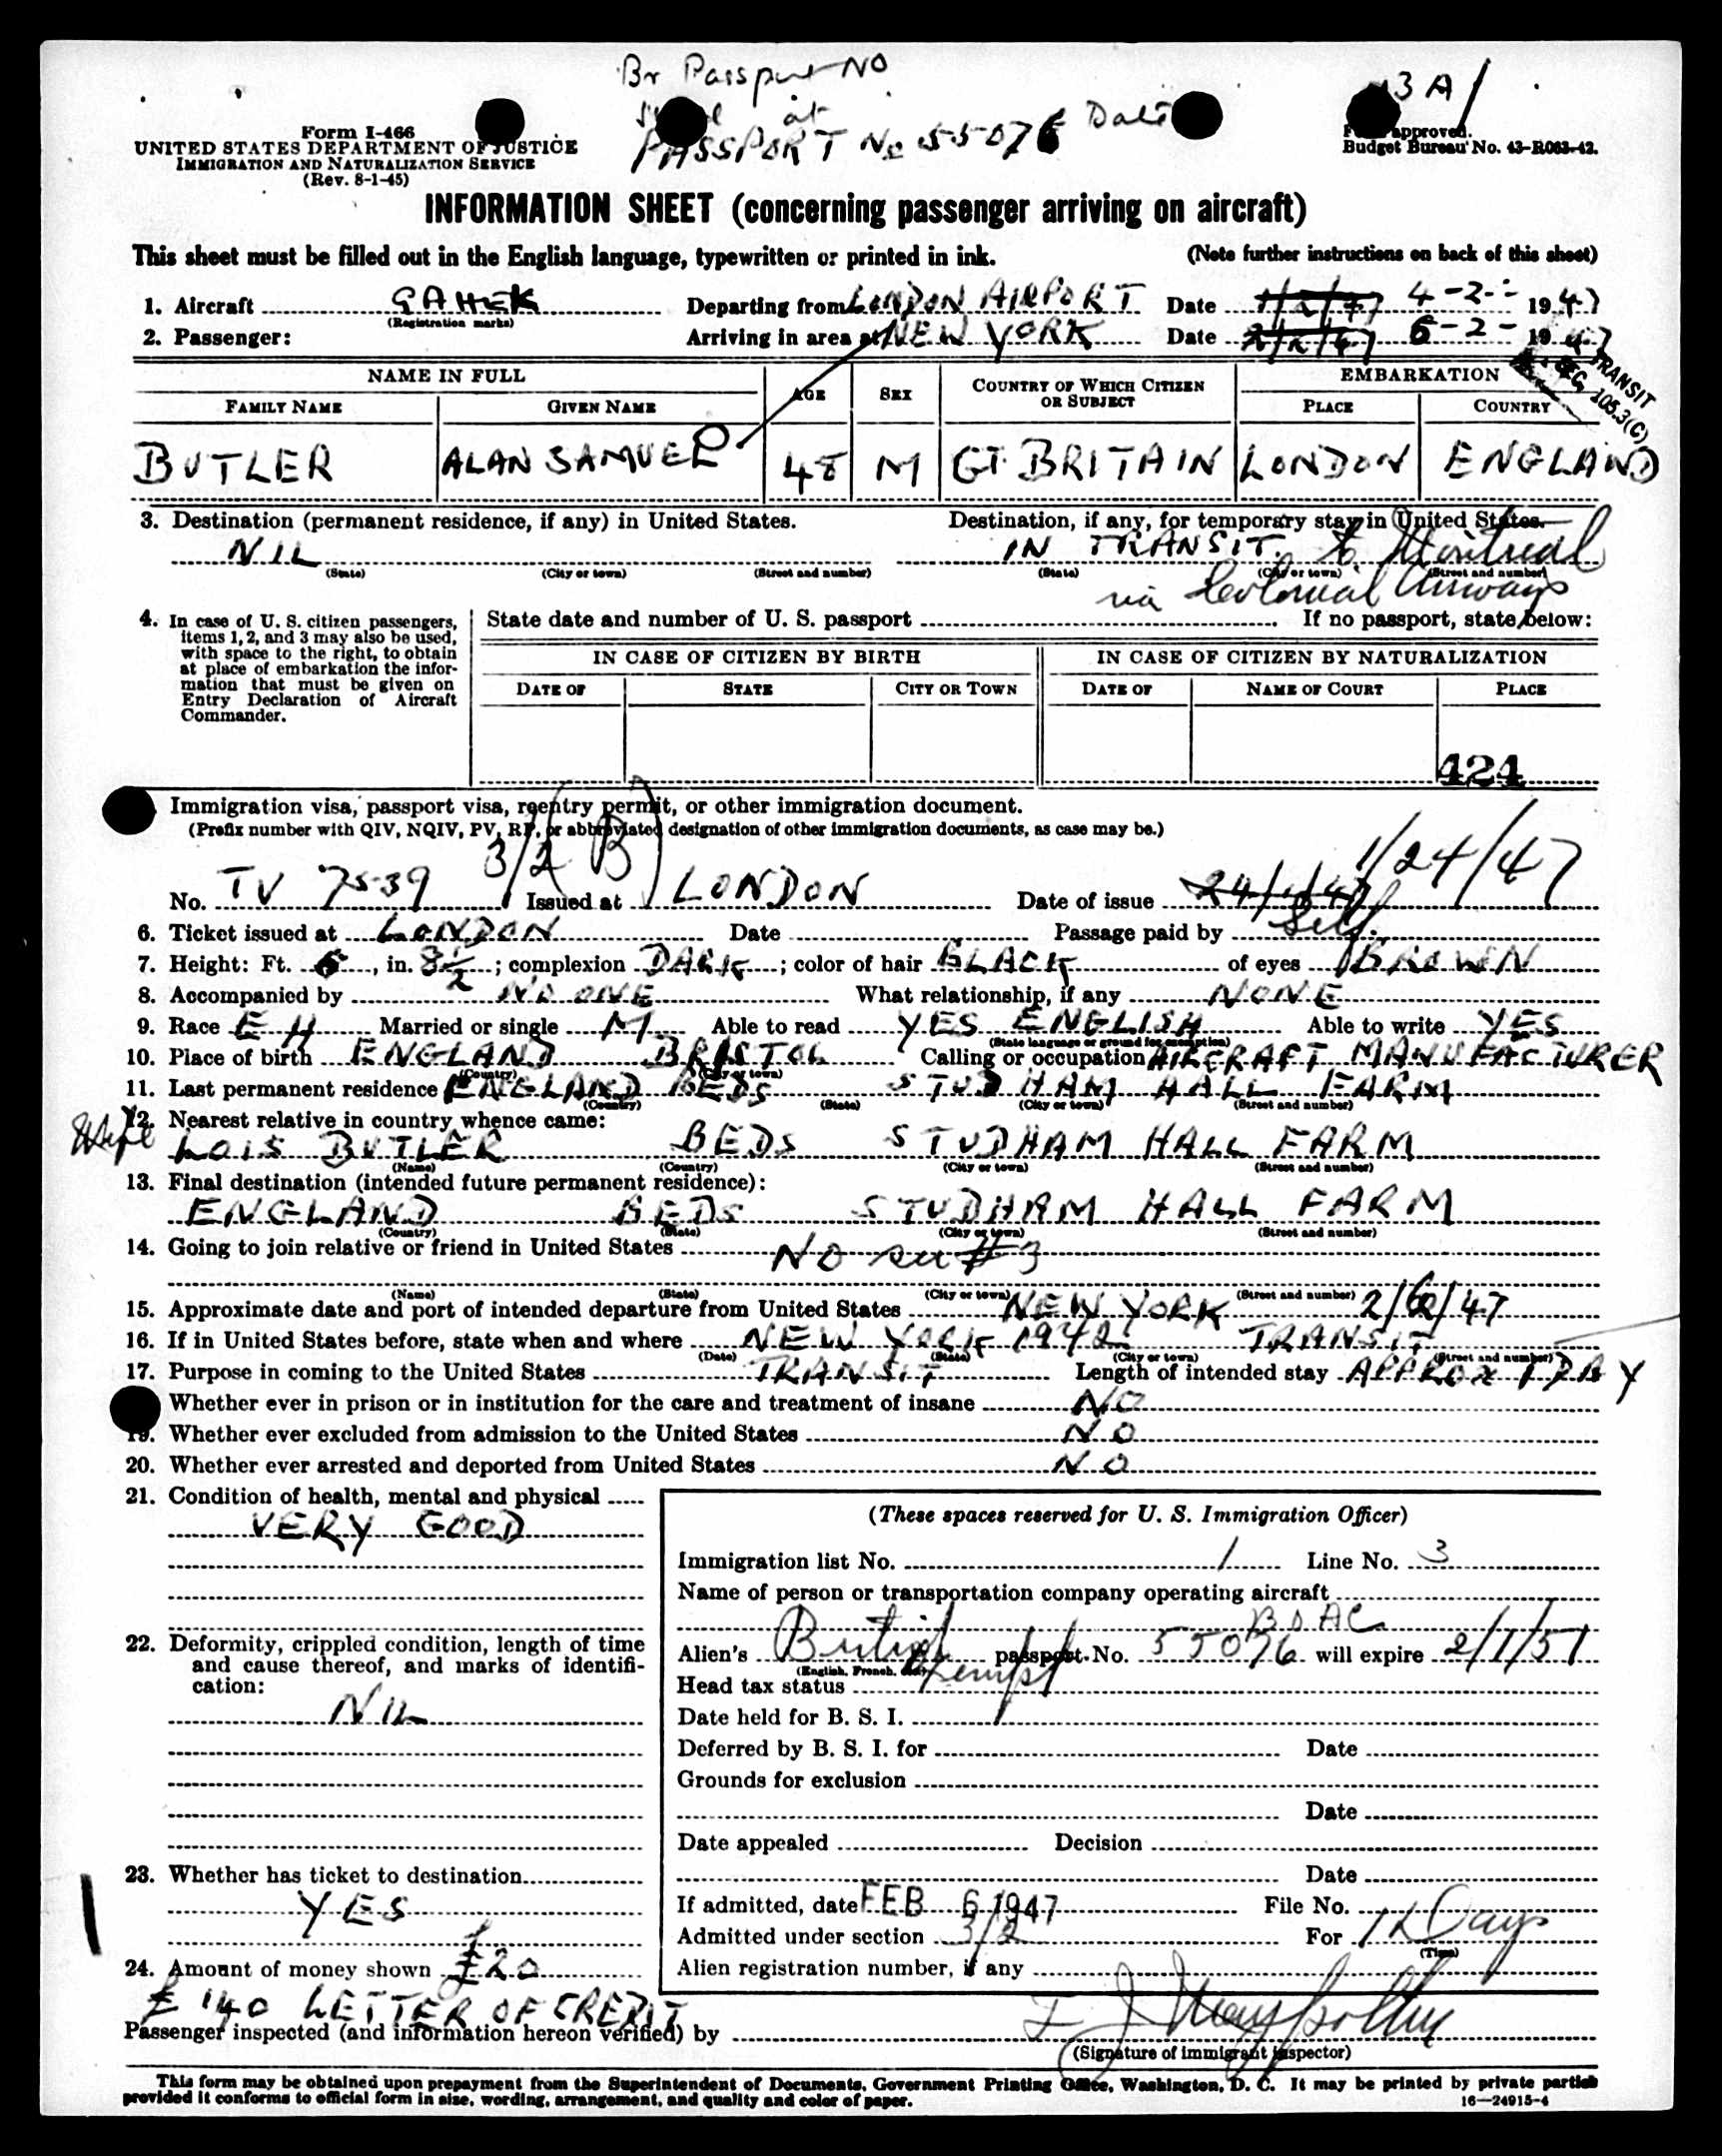 Br Passport NO
at Date
3 A
PASSPORT No 55076
Form I-466
UNITED STATES DEPARTMENT OF JUSTICE
IMMIGRATION AND NATURALIZATION SERVICE
(Rev. 8-1-45)
approved.
Budget Bureau No. 43-R063-42.
INFORMATION SHEET (concerning passenger arriving on aircraft)
This sheet must be filled out in the English language, typewritten or printed in ink. (Note further instructions on back of this sheet)
1. Aircraft GAHEK Departing from LONDON AIRPORT Date 1/2/47 4-2- 1947
(Registration marks)
2. Passenger: Arriving in area at NEW YORK Date 2/2/47 6-2- 1947
TRANSIT
SEC. 105.3(C)
NAME IN FULL AGE SEX COUNTRY OF WHICH CITIZEN OR SUBJECT EMBARKATION
FAMILY NAME GIVEN NAME PLACE COUNTRY
BUTLER ALAN SAMUEL 48 M GT. BRITAIN LONDON ENGLAND
3. Destination (permanent residence, if any) in United States. Destination, if any, for temporary stay in United States.
NIL IN TRANSIT. to Montreal
(State) (City or town) (Street and number) (State) (City or town) (Street and number)
via Colonial Airways
4. In case of U. S. citizen passengers, items 1, 2, and 3 may also be used, with space to the right, to obtain at place of embarkation the information that must be given on Entry Declaration of Aircraft Commander.
State date and number of U. S. passport If no passport, state below:
IN CASE OF CITIZEN BY BIRTH IN CASE OF CITIZEN BY NATURALIZATION
DATE OF STATE CITY OR TOWN DATE OF NAME OF COURT PLACE
424
Immigration visa, passport visa, reentry permit, or other immigration document.
(Prefix number with QIV, NQIV, PV, RP, or abbreviated designation of other immigration documents, as case may be.)
3/2 (B) 1/24/47
No. TV 7539 Issued at LONDON Date of issue 24/1/47
6. Ticket issued at LONDON Date Passage paid by Self.
7. Height: Ft. 5, in. 8 1/2; complexion DARK; color of hair BLACK of eyes BROWN
8. Accompanied by NO ONE What relationship, if any NONE
9. Race E H Married or single M Able to read YES ENGLISH Able to write YES
(State language or ground for exemption)
10. Place of birth ENGLAND BRISTOL Calling or occupation AIRCRAFT MANUFACTURER
(Country) (City or town)
11. Last permanent residence ENGLAND BEDS STUDHAM HALL FARM
(Country) (State) (City or town) (Street and number)
12. Nearest relative in country whence came:
Wife LOIS BUTLER BEDS STUDHAM HALL FARM
(Name) (Country) (City or town) (Street and number)
13. Final destination (intended future permanent residence):
ENGLAND BEDS STUDHAM HALL FARM
(Country) (State) (City or town) (Street and number)
14. Going to join relative or friend in United States NO see #3
(Name) (State) (City or town) (Street and number)
15. Approximate date and port of intended departure from United States NEW YORK 2/6/47
16. If in United States before, state when and where NEW YORK 1942 TRANSIT
(Date) (State) (City or town) (Street and number)
17. Purpose in coming to the United States TRANSIT Length of intended stay APPROX 1 DAY
Whether ever in prison or in institution for the care and treatment of insane NO
19. Whether ever excluded from admission to the United States NO
20. Whether ever arrested and deported from United States NO
21. Condition of health, mental and physical
VERY GOOD
22. Deformity, crippled condition, length of time and cause thereof, and marks of identification:
NIL
23. Whether has ticket to destination
YES
24. Amount of money shown £20
£140 LETTER OF CREDIT
(These spaces reserved for U. S. Immigration Officer)
Immigration list No. 1 Line No. 3
Name of person or transportation company operating aircraft
BOAC
Alien's British passport No. 55076 will expire 2/1/51
(English, French, etc.)
Head tax status
Date held for B. S. I.
Deferred by B. S. I. for Date
Grounds for exclusion
Date
Date appealed Decision
Date
If admitted, date FEB 6 1947 File No.
Admitted under section 3/2 For Days
(Time)
Alien registration number, if any
Passenger inspected (and information hereon verified) by
(Signature of immigrant inspector)
This form may be obtained upon prepayment from the Superintendent of Documents, Government Printing Office, Washington, D. C. It may be printed by private parties
provided it conforms to official form in size, wording, arrangement, and quality and color of paper. 16—24915-4